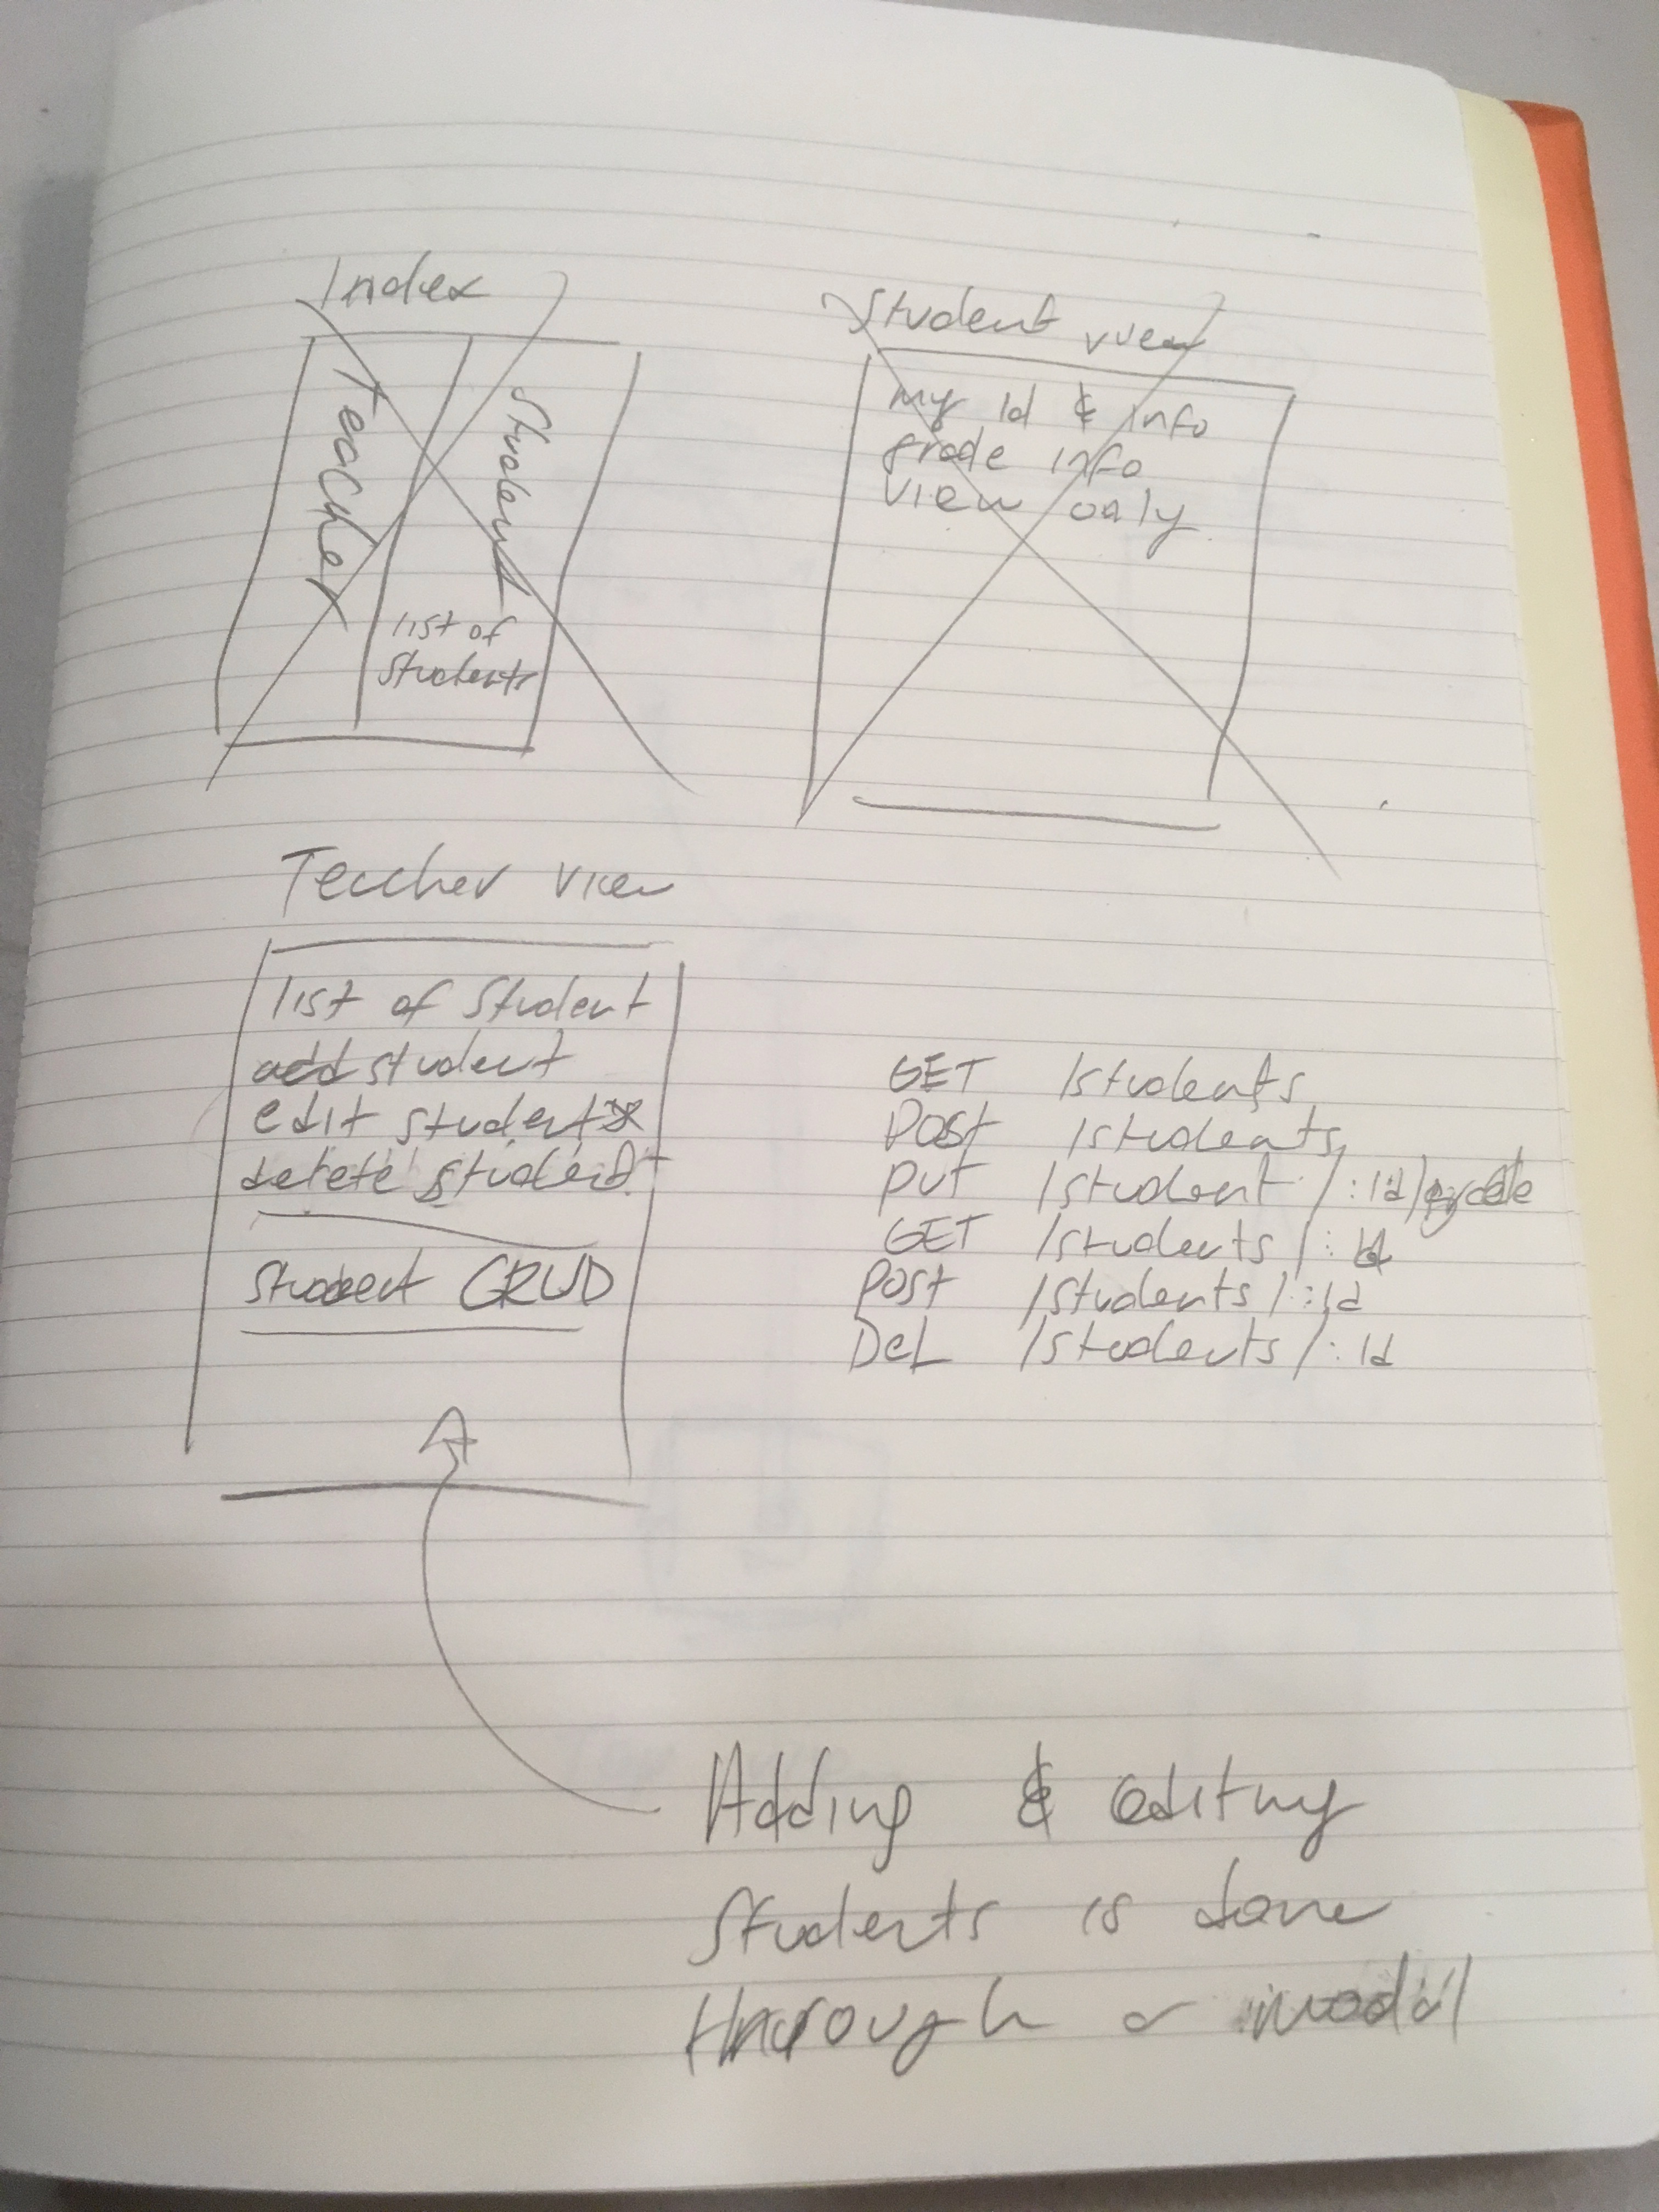 Index
Teacher
Student
list of
students
Student view
my Id & info
grade info
view only
Teacher view
list of Student
add student
edit student
delete student
Student CRUD
GET /students
Post /students
put /student/:id/grade
GET /students/:id
post /students/:id
DeL /students/:id
Adding & editing
Students is done
through a modal